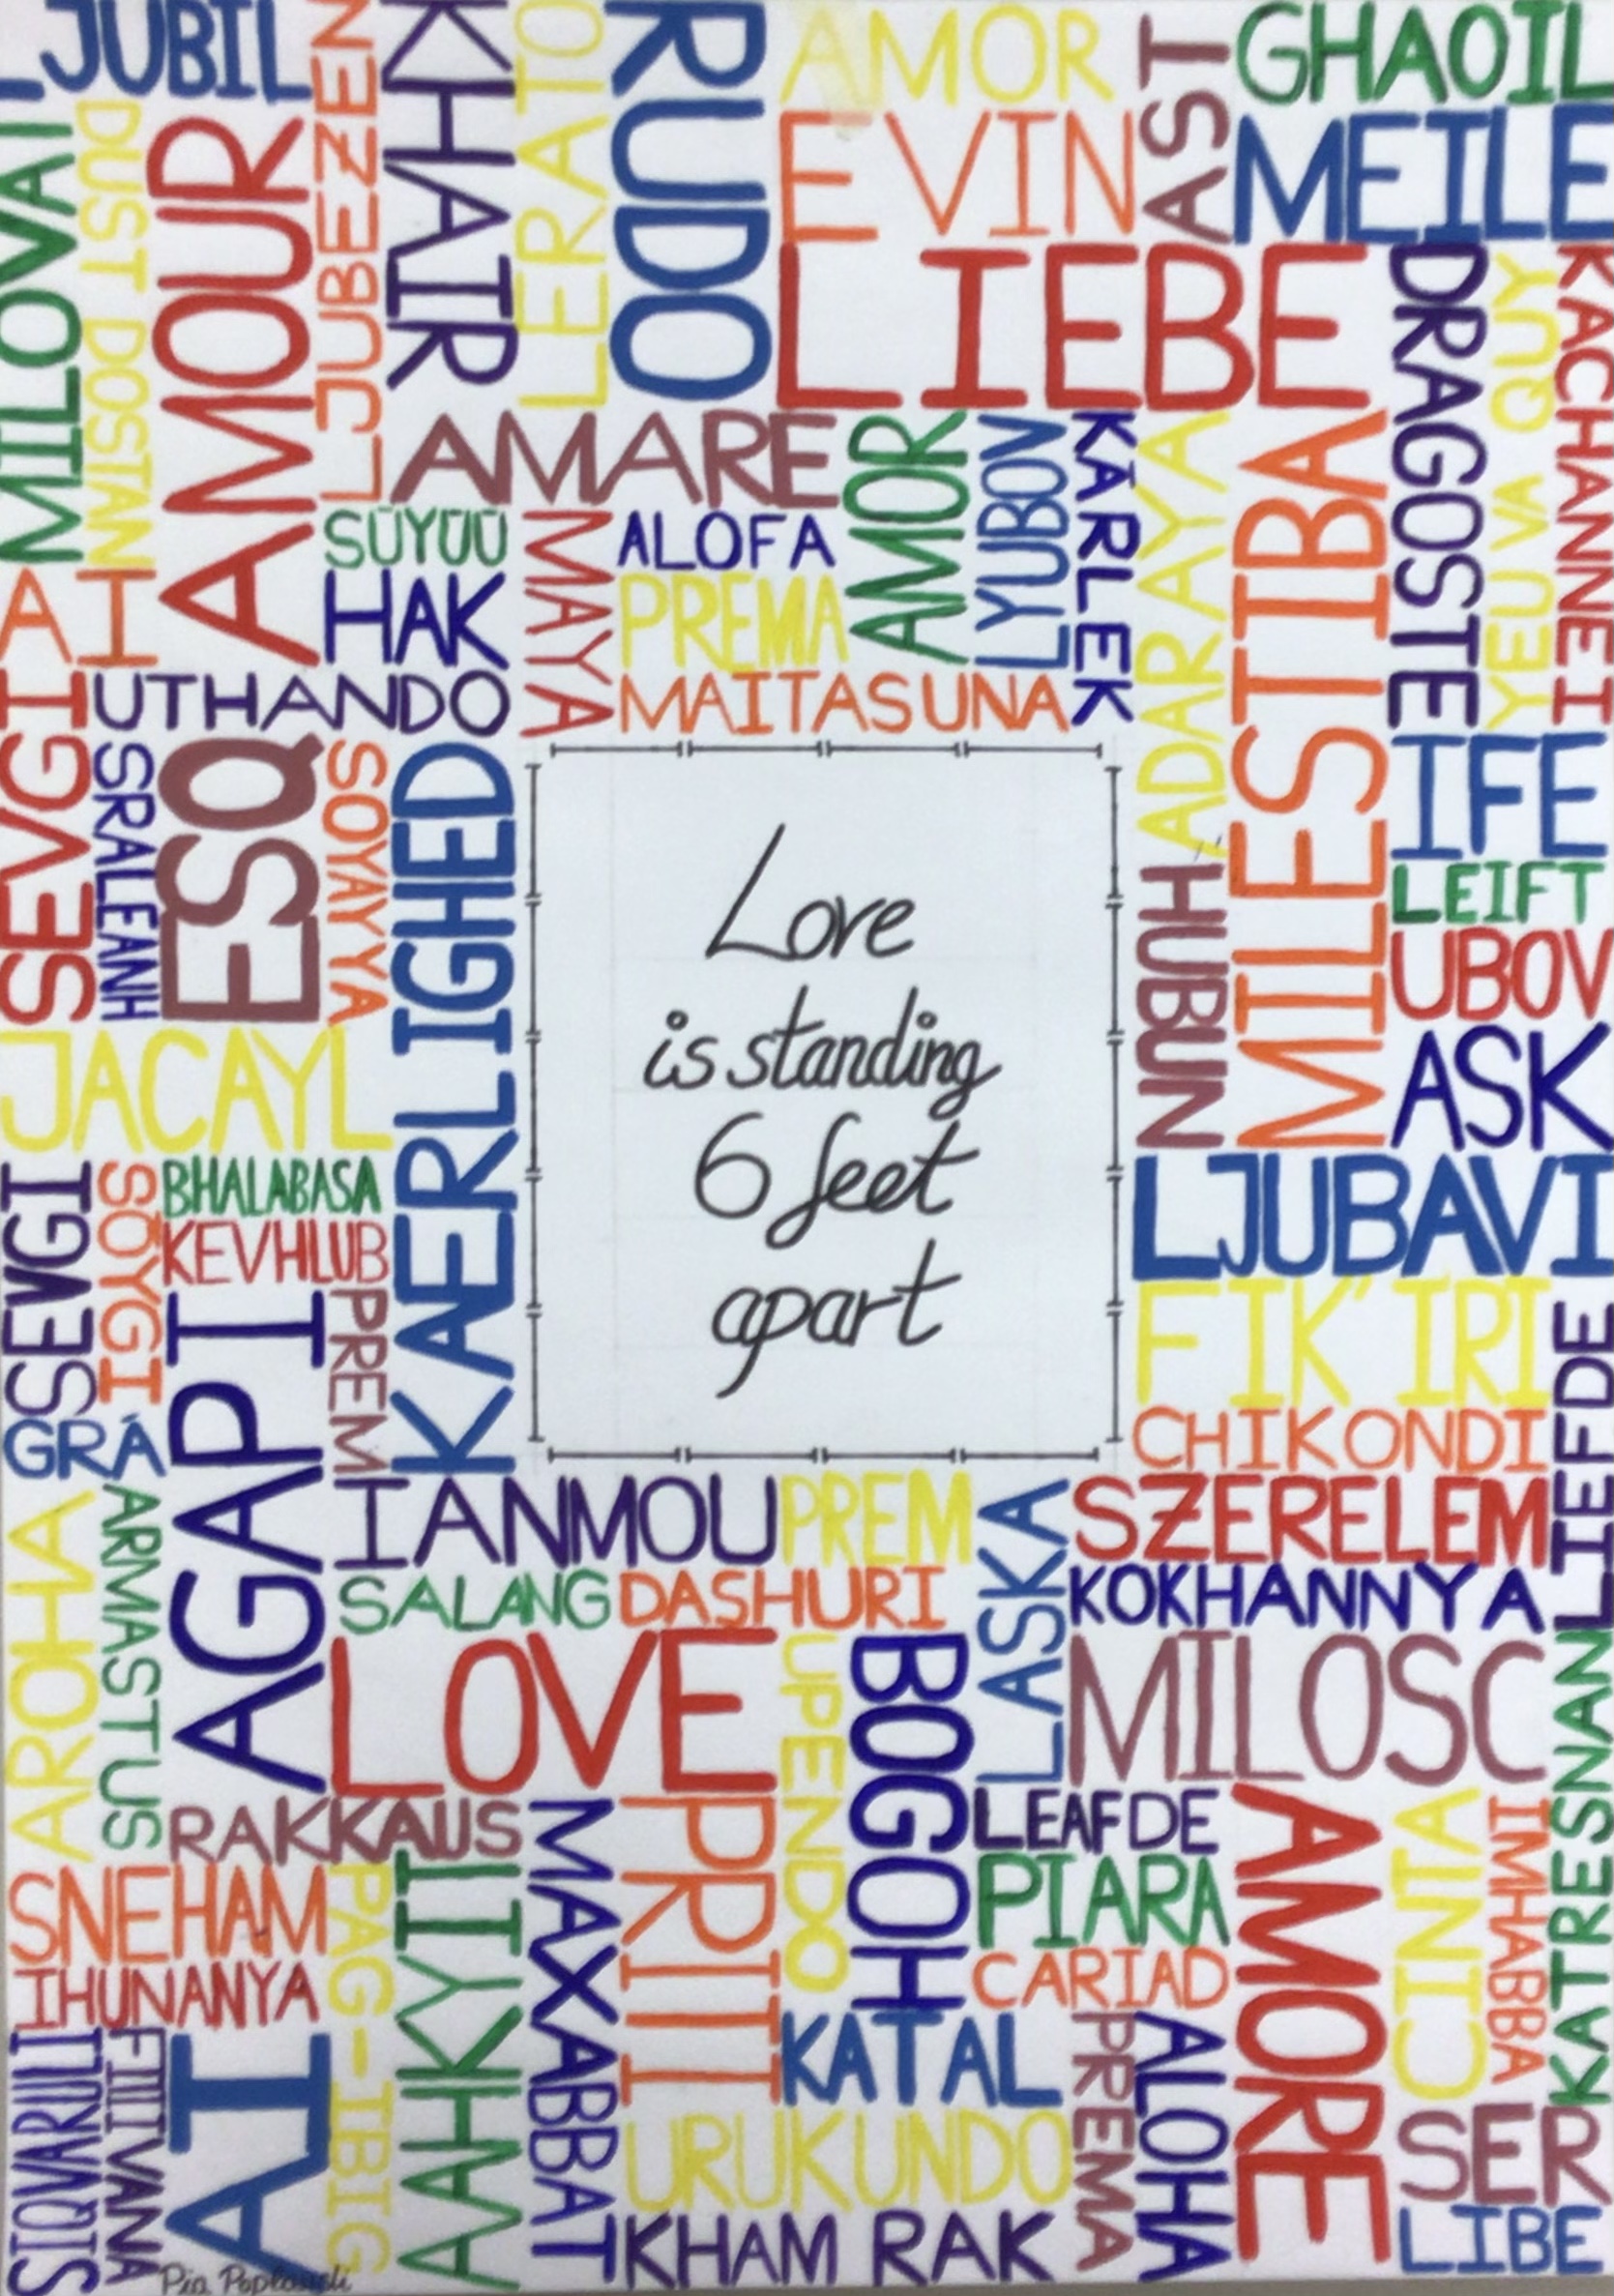 LJUBIL
LJUBEZEN
KHAIR
LERATO
RUDO
AMOR
AST
GHAOIL
MILOVAT
DUST DOSTAN
AMOUR
EVIN
MEILE
LIEBE
DRAGOSTE
YEU VA QUY
KACHANNEI
AMARE
AMOR
LYUBOV
KÄRLEK
ADARAYA
MILESTIBA
SÜYÜÜ
MAYA
ALOFA
AI
HAK
PREMA
UTHANDO
MAITASUNA
SEVGI
SRALEANH
ESQ
SOYAYYA
KAERLIGHED
IFE
LEIFT
HUBUN
UBOV
Love
is standing
6 feet
apart
JACAYL
ASK
SEVGI
SÖYGI
BHALABASA
LJUBAVI
KEVHLUB
AGAPI
PREM
FIK'' IRI
LIEFDE
GRÁ
CHIKONDI
AROHA
ARMASTUS
IANMOU
PREM
LASKA
SZERELEM
SALANG
DASHURI
KOKHANNYA
LOVE
UPENDO
BOGOH
MILOSC
KATRESNAN
RAKKAUS
MAXABBAT
PRITI
LEAFDE
AMORE
CINTA
IMHABBA
SNEHAM
PAG-IBIG
AAHKYIT
PIARA
IHUNANYA
CARIAD
SIQVARULI
FITIIVANA
AI
KATAL
PREMA
ALOHA
URUKUNDO
SER
KHAM RAK
LIBE